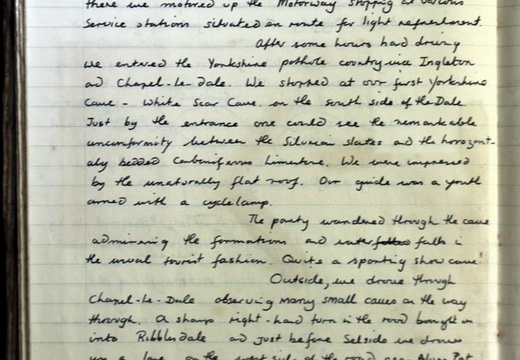 there we motored up the Motorway stopping at various
Service stations situated en route for light refreshment.
After some hours hard driving
we entered the Yorkshire pothole country via Ingleton
and Chapel-le-Dale. We stopped at our first Yorkshire
Cave - White Scar Cave. on the south side of the Dale.
Just by the entrance one could see the remarkable
unconformity between the Silurian slates and the horozont-
aly bedded Carboniferous limestone. We were impressed
by the unaturally flat roof. Our guide was a youth
armed with a cyclelamp.
The party wandered through the cave
adminaring the formations and water falls in
the usual tourist fashion. Quite a sporting show cave!
Outside, we drove through
Chapel-le-Dale observing many small caves on the way
through. A sharp right-hand turn in the road brought us
into Ribblesdale and just before Selside we drove
up a lane on the west side of the road near Alum Pot